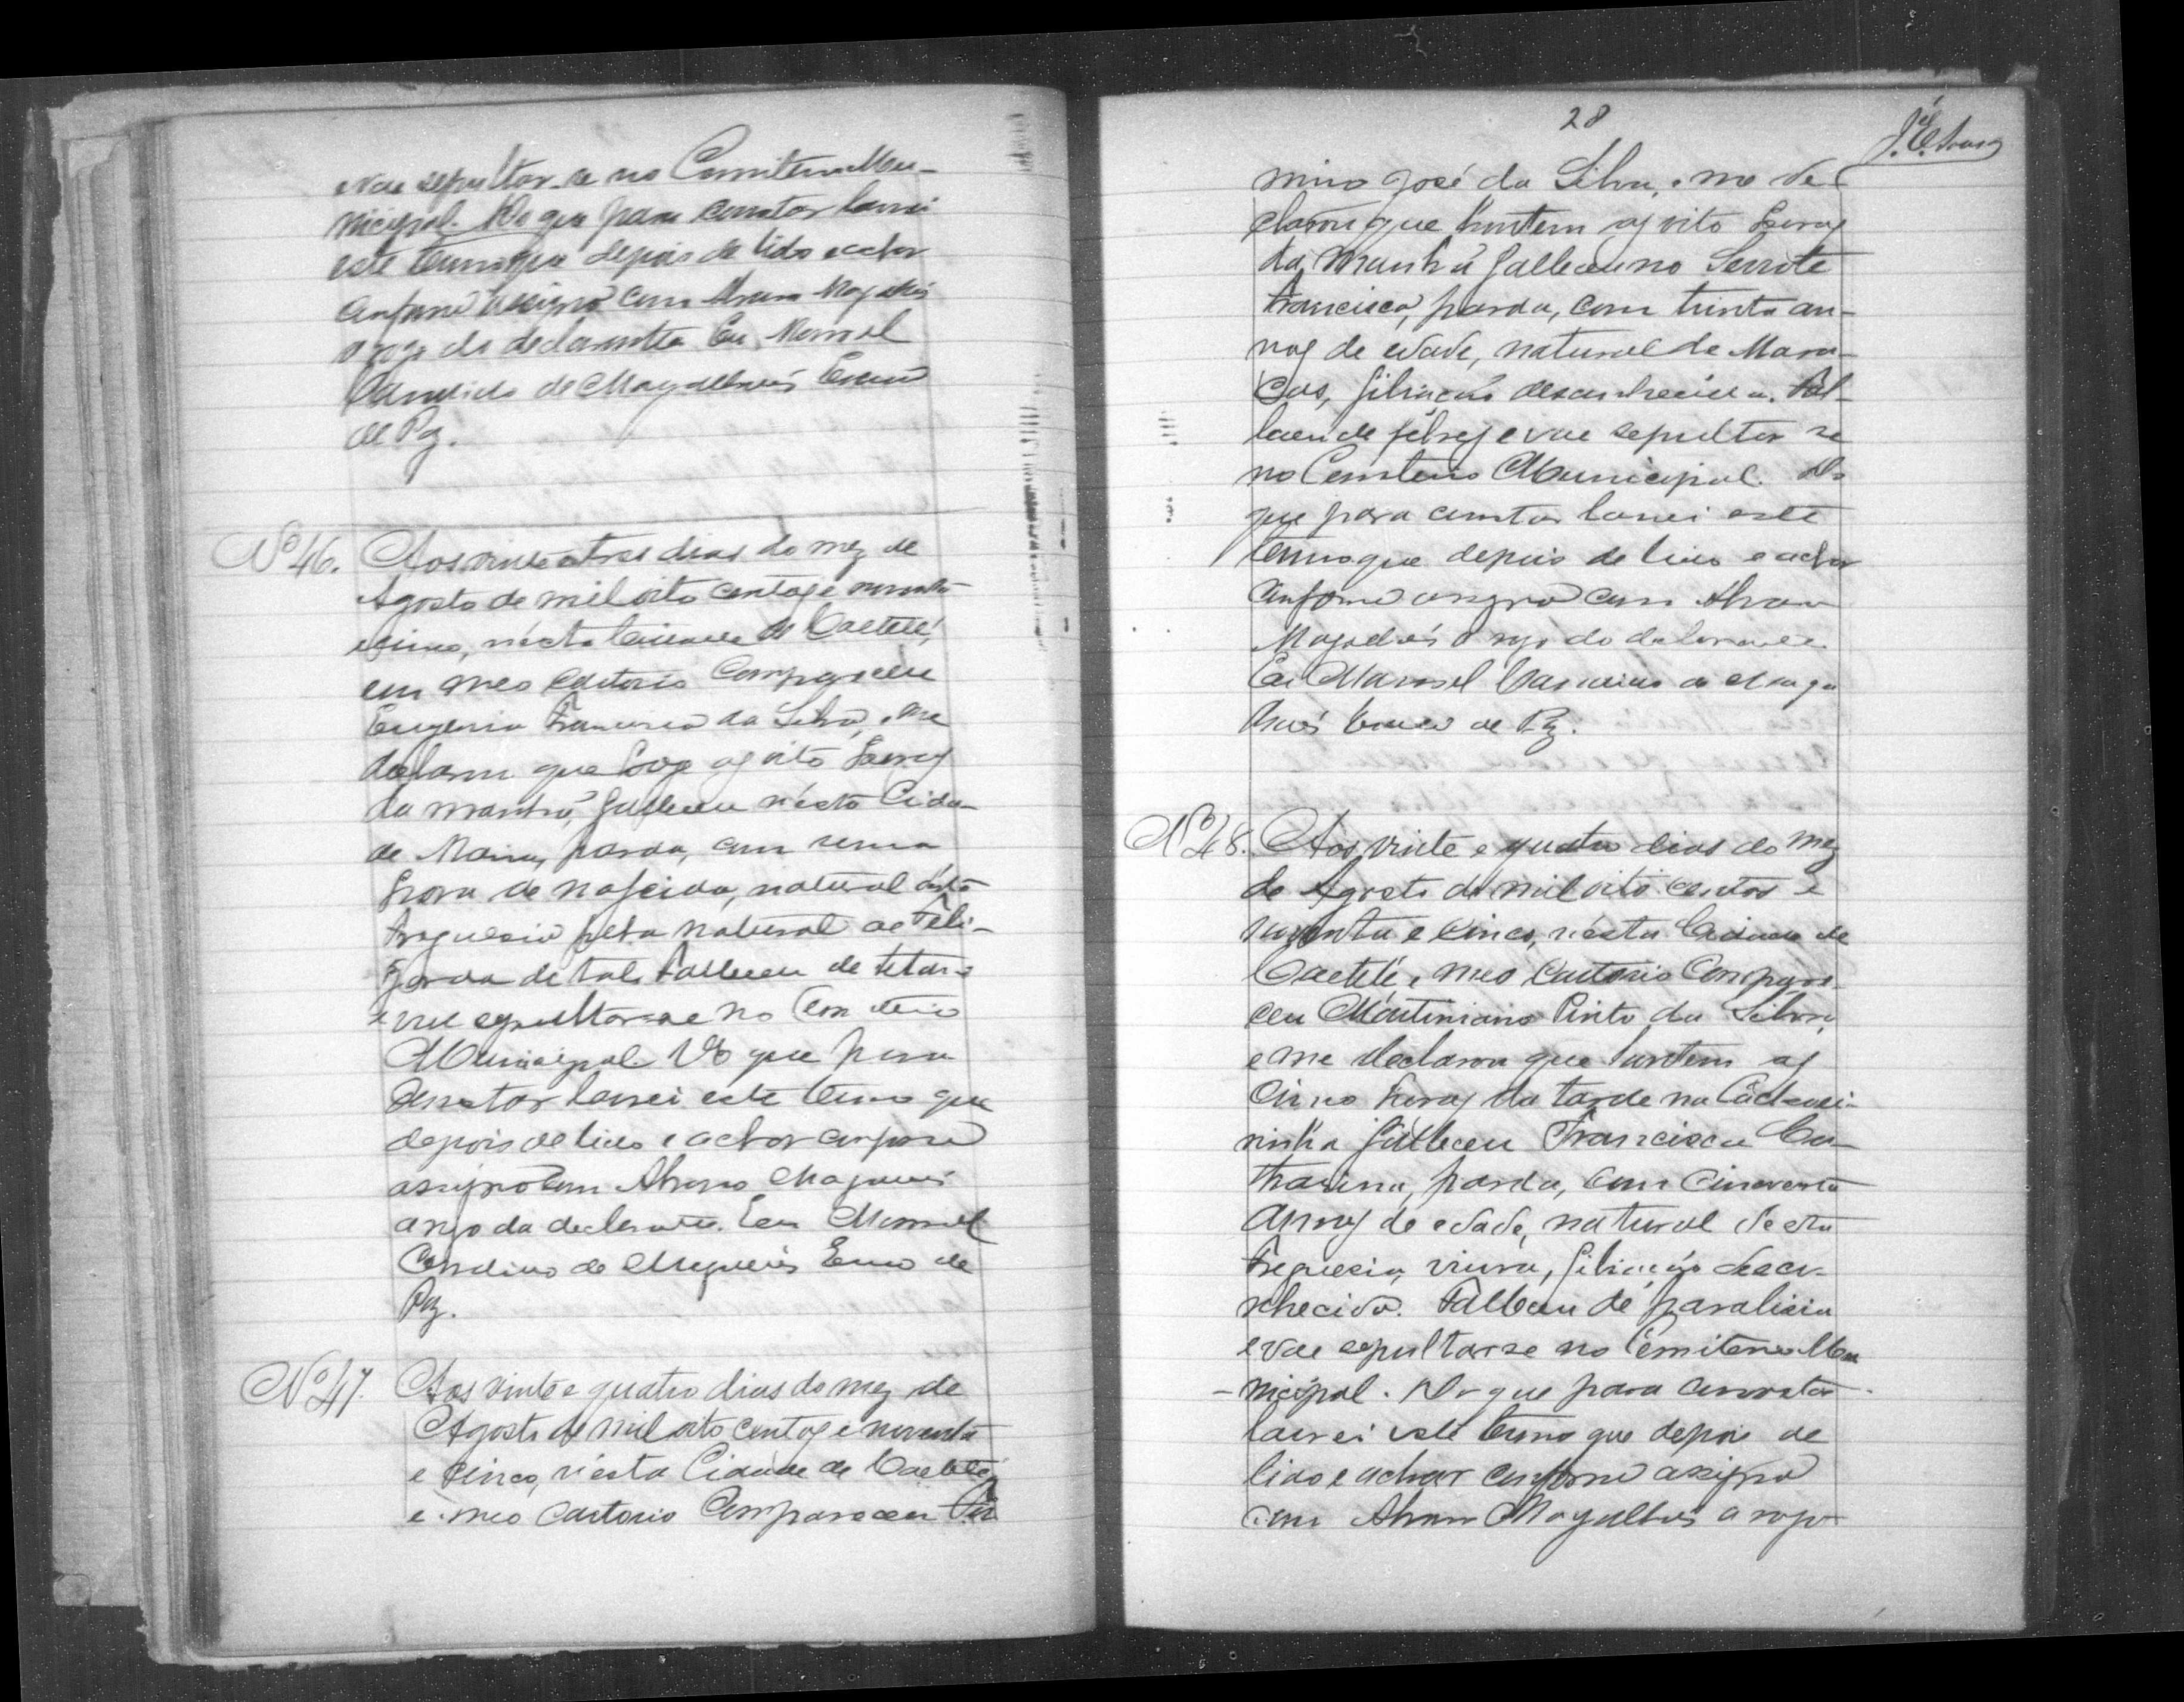 e vae sepultar-se no Comiterio Mu-
nicipal. Do que para constar lavrei
este termo que depois de lido e achar
conforme assigno com Alvaro Magalhães
a rogo da declarante Eu Manoel
Candido de Magalhães Escrivão
de Paz.
Nº 46. Aos vinte e tres dias do mez de
Agosto de mil oito centos e noventa
e cinco, nésta Cidade de Caeteté,
em meo Cartorio Compareceu
Eugenia Francisca da Silva, e me
declarou que hoje as oito horas
da manhã, falleceu nésta Cida-
de Maria, parda, com uma
hora de nascida, natural désta
Freguesia filha natural de Feli-
zarda de tal. Falleceu de tetano
e vae sepultar-se no Cemiterio
Municipal. Do que para
constar lavrei este termo que
depois de lido e achar conforme
assigno com Alvaro Magalhães
a rogo da declarante. Eu Manoel
Candido de Magalhães Escrivão de
Paz.
Nº 47. Aos vinte e quatro dias do mez de
Agosto de mil oito centos e noventa
e cinco, nésta Cidade de Caeteté,
e meo Cartorio Compareceu
28
mino José da Silva, e me de-
clarou que hontem as oito horas
da manhã falleceu no Serrote
Francisca, parda, com trinta an-
nos de edade, natural de Mara-
cas, filiação desconhecida. Fal-
laceu de febres e vae sepultar se
no Cemiterio Municipal. Do
que para constar lavrei este
termo que depois de lido e achar
conforme assigno com Alvaro
Magalhães a rogo do declarante.
Eu Manoel Candido de Maga
lhães Escrivão de Paz.
Nº 48. Aos vinte e quatro dias do mez
de Agosto de mil oito centos e
noventa e cinco, nésta Cidade de
Caeteté, e meo Cartorio Compare-
ceu Martiniano Pinto da Silva,
e me declarou que hontem as
cinco horas da tarde na Cachoei-
rinha falleceu Francisca Ca-
tharina, parda, com cincoenta
annos de edade, natural desta
Freguesia, viuva, filiação desco-
nhecida. Falleceu de paralisia
e vae sepultar-se no Cemiterio Mu
-nicipal. Do que para constar
lavrei este termo que depois de
lido e achar conforme assigno
com Alvaro Magalhães a rogo